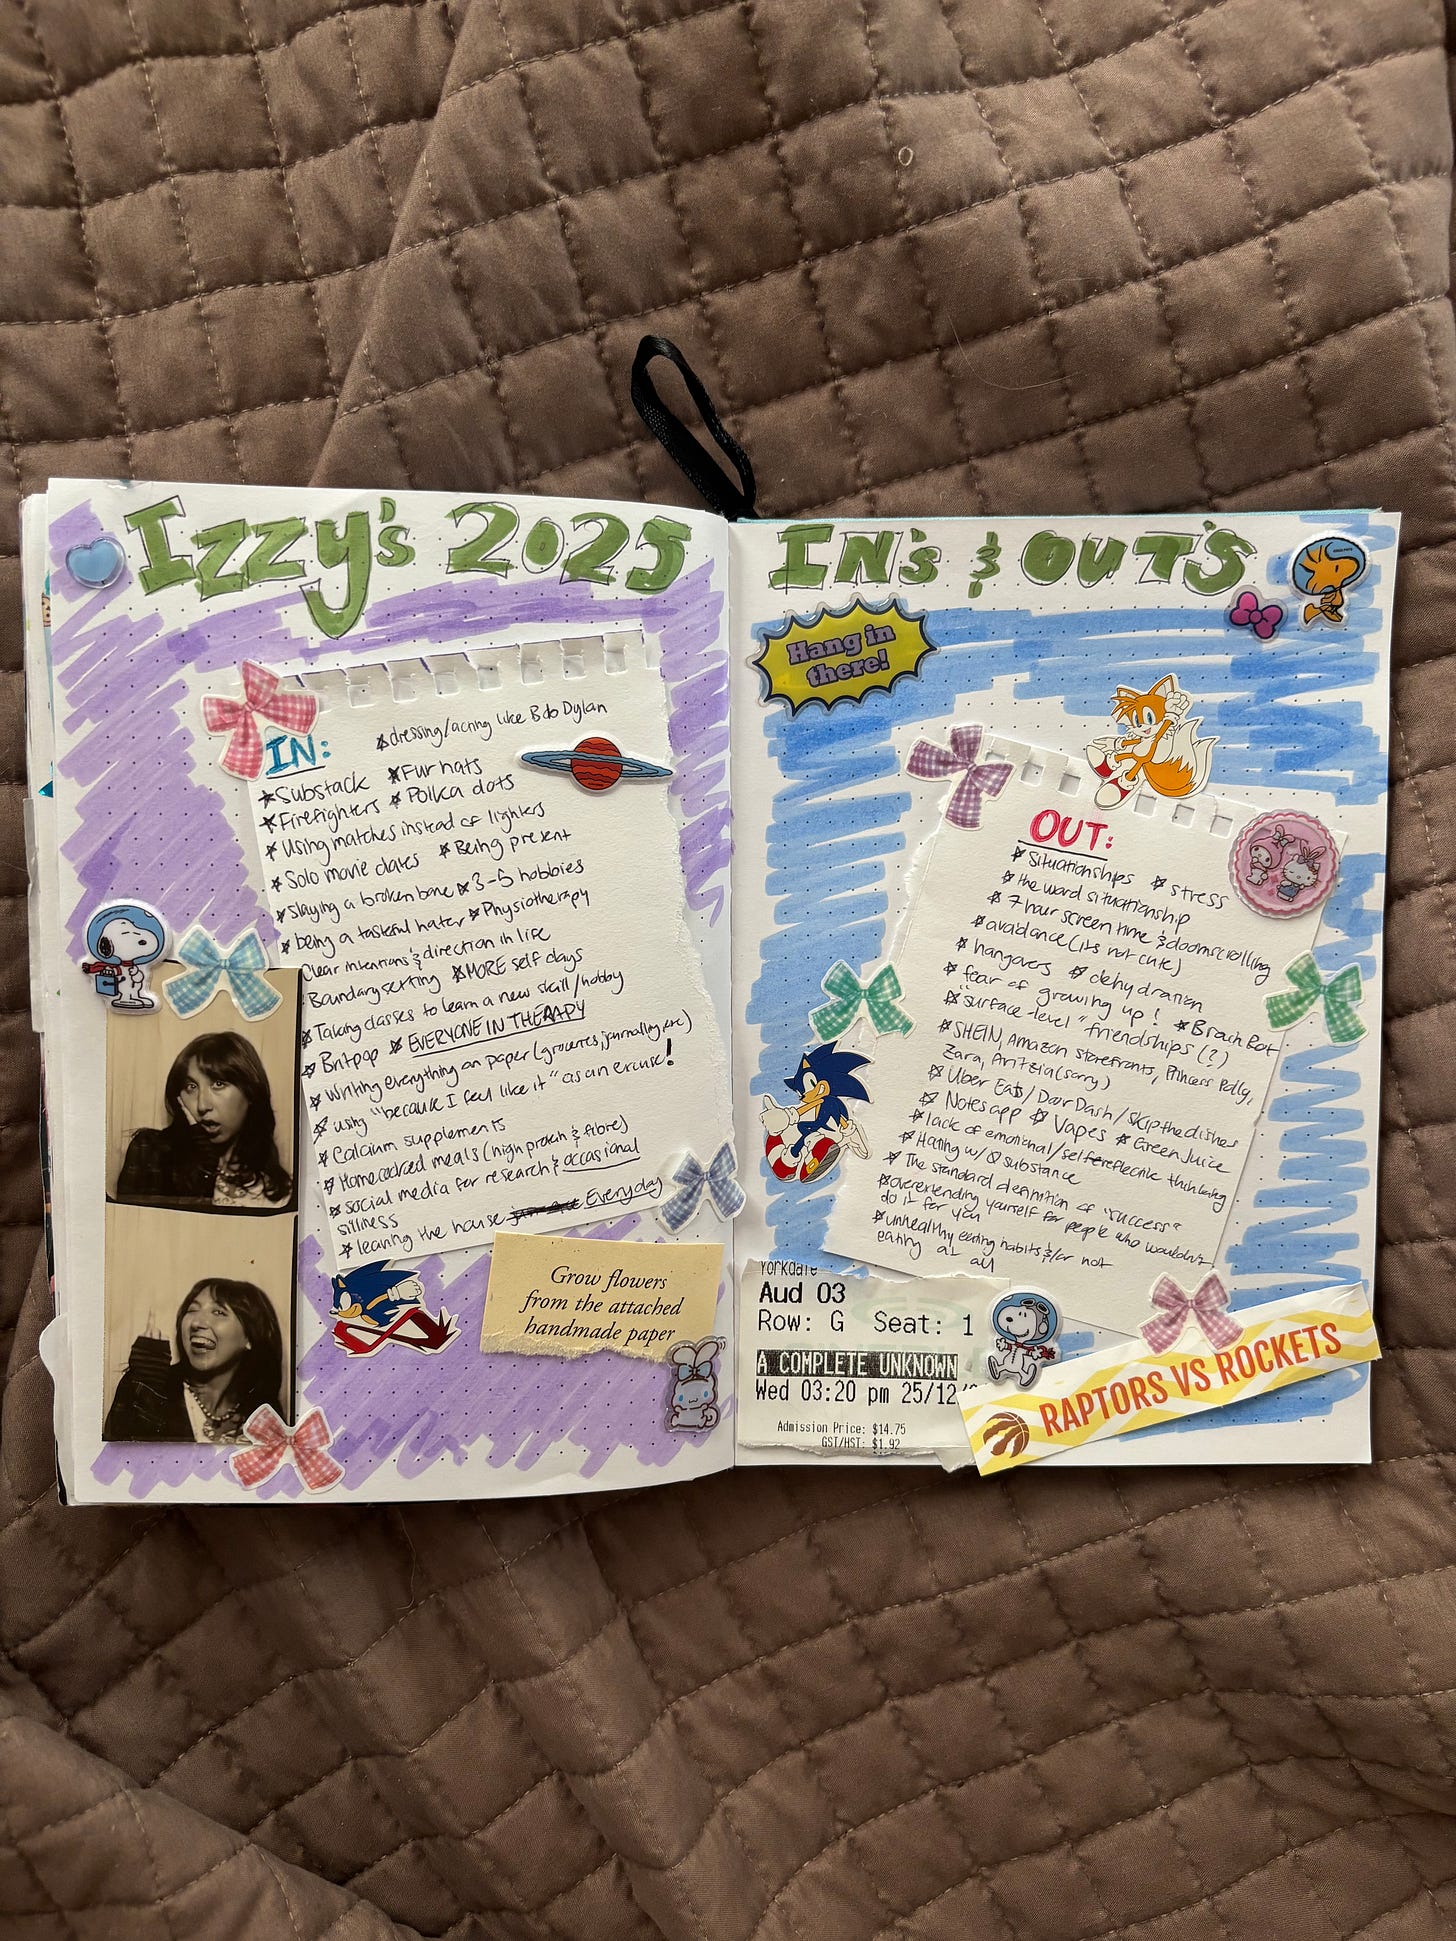 Izzy's 2025
IN:
☆ dressing/acting like Bob Dylan
☆ Substack ☆ Fur hats
☆ Firefighters ☆ Polka dots
☆ Using matches instead of lighters
☆ Solo movie dates ☆ Being present
☆ slaying a broken bone ☆ 3-5 hobbies
☆ being a tasteful hater ☆ Physiotherapy
Clear intentions & direction in life
Boundary setting ☆ MORE self days
☆ Taking classes to learn a new skill/hobby
☆ Britpop ☆ EVERYONE IN THERAPY
☆ Writing everything on paper (groceries, journalling, etc)
☆ using "because I feel like it" as an excuse!
☆ Calcium supplements
☆ Homecooked meals (high protein & fibre)
☆ social media for research & occasional
silliness
☆ leaving the house Everyday
Grow flowers
from the attached
handmade paper
IN's & OUT'S
Hang in
there!
OUT:
☆ Situationships ☆ stress
☆ the word situationship
☆ 7 hour screen time & doomscrolling
☆ avoidance (its not cute)
☆ hangovers ☆ dehydration
☆ fear of growing up! ☆ Brach Bot
☆ "surface-level" friendships (?)
☆ SHEIN, Amazon storefronts, Princess Polly,
Zara, Aritzia (sorry)
☆ Uber Eats/DoorDash/skipthedishes
☆ Notes app ☆ Vapes ☆ Green Juice
☆ lack of emotional/self-reflective thinking
☆ Hating w/ 0 substance
☆ The standard definition of "success"
☆ overextending yourself for people who wouldn't
do it for you
☆ unhealthy eating habits &/or not
eating at all
Yorkdale
Aud 03
Row: G Seat: 1
A COMPLETE UNKNOWN
Wed 03:20 pm 25/12/
Admission Price: $14.75
GST/HST: $1.92
RAPTORS VS ROCKETS